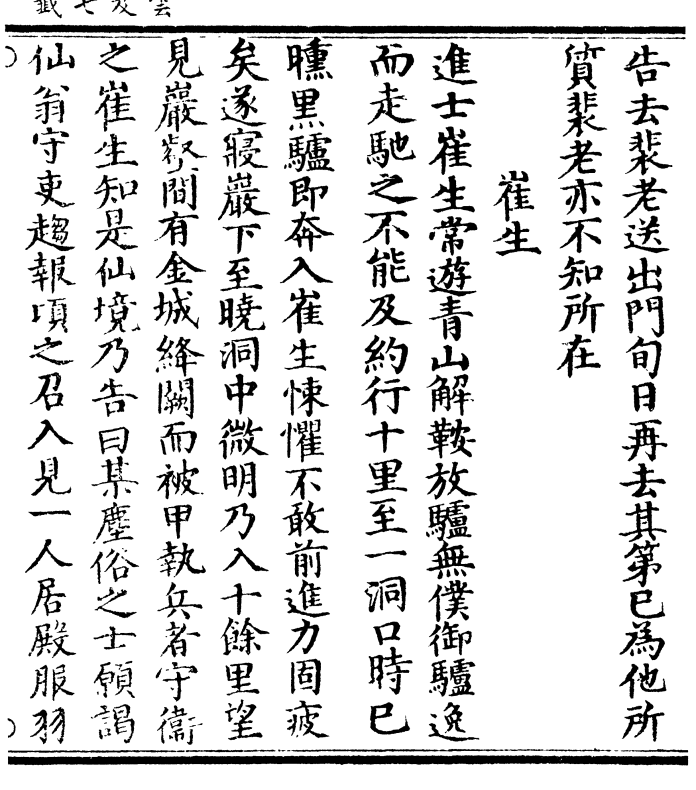 告去裴老送出門旬日再去其第已為他所
質裴老亦不知所在
崔生
進士崔生常遊青山解鞍放驢無僕御驢逸
而走馳之不能及約行十里至一洞口時已
曛黑驢即奔入崔生悚懼不敢前進力固疲
矣遂寢巖下至曉洞中微明乃入十餘里望
見巖壑間有金城絳闕而被甲執兵者守衞
之崔生知是仙境乃告曰某塵俗之士願謁
仙翁守吏趨報頃之召入見一人居殿服羽